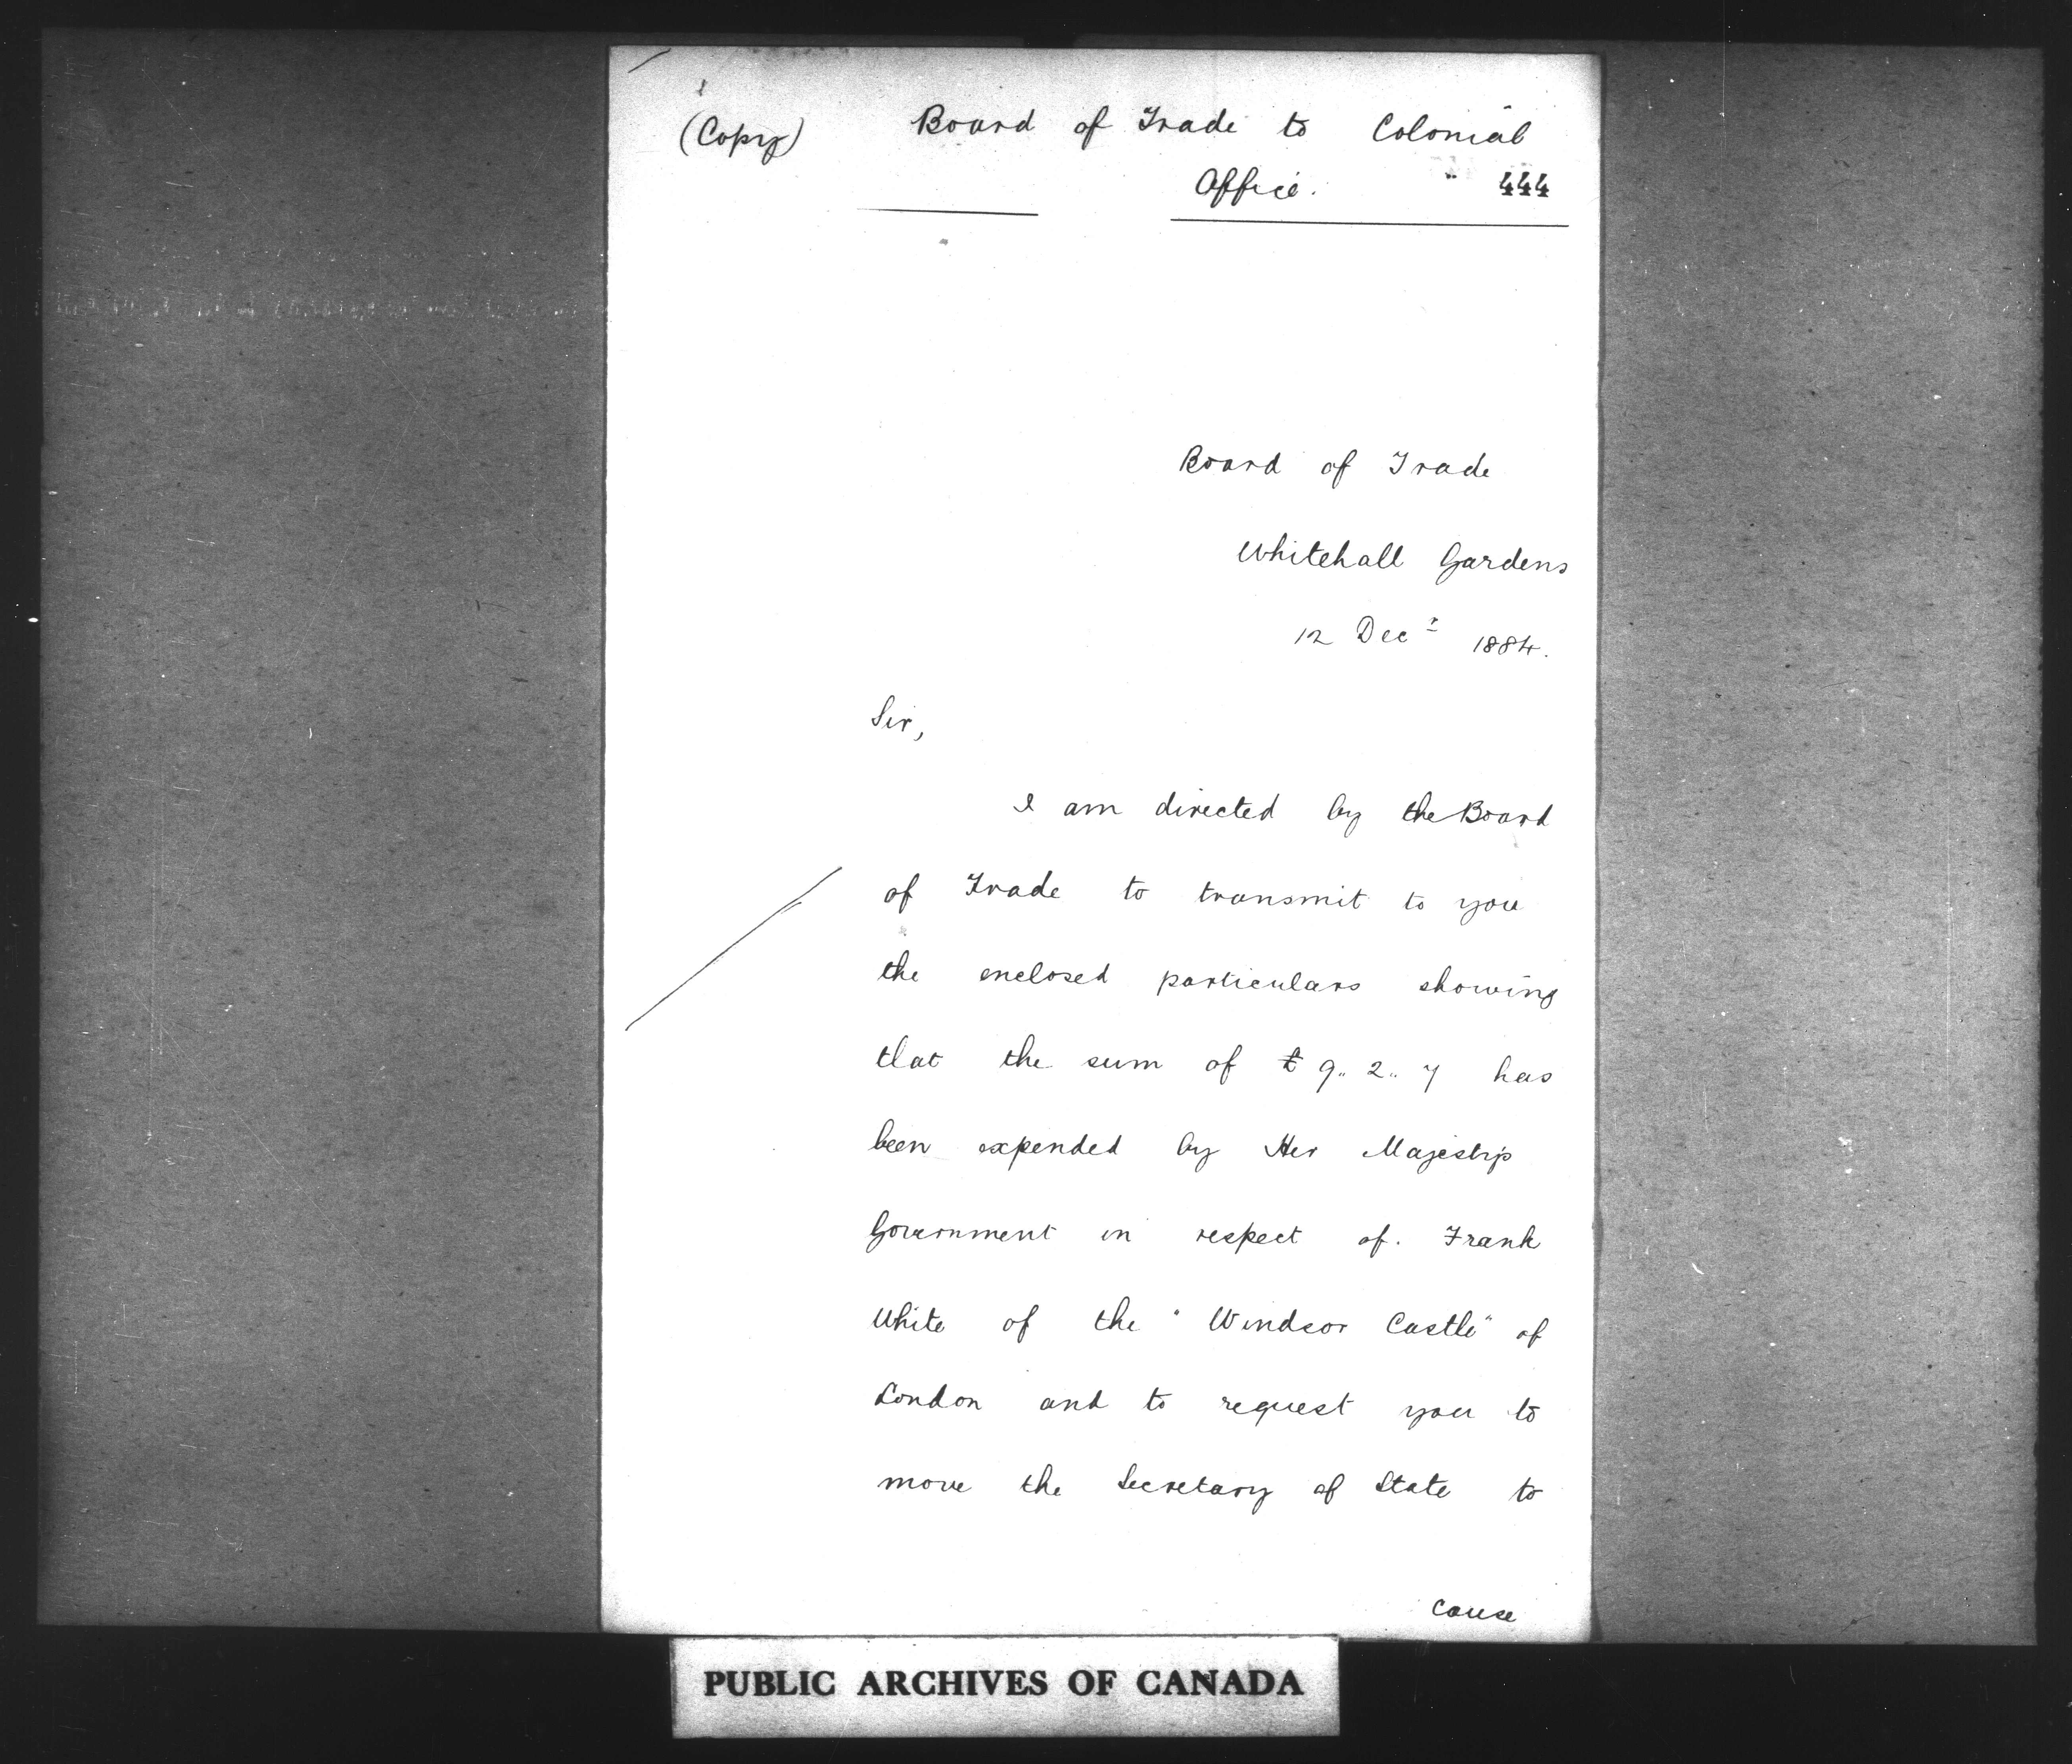 (Copy) Board of Trade to Colonial
Office. " 444
Board of Trade
Whitehall Gardens
12 Decr 1884.
Sir,
I am directed by the Board
of Trade to transmit to you
the enclosed particulars showing
that the sum of £ 9.. 2.. 7 has
been expended by Her Majesty's
Government in respect of. Frank
White of the "Windsor Castle" of
London and to request you to
move the Secretary of State to
cause
PUBLIC ARCHIVES OF CANADA